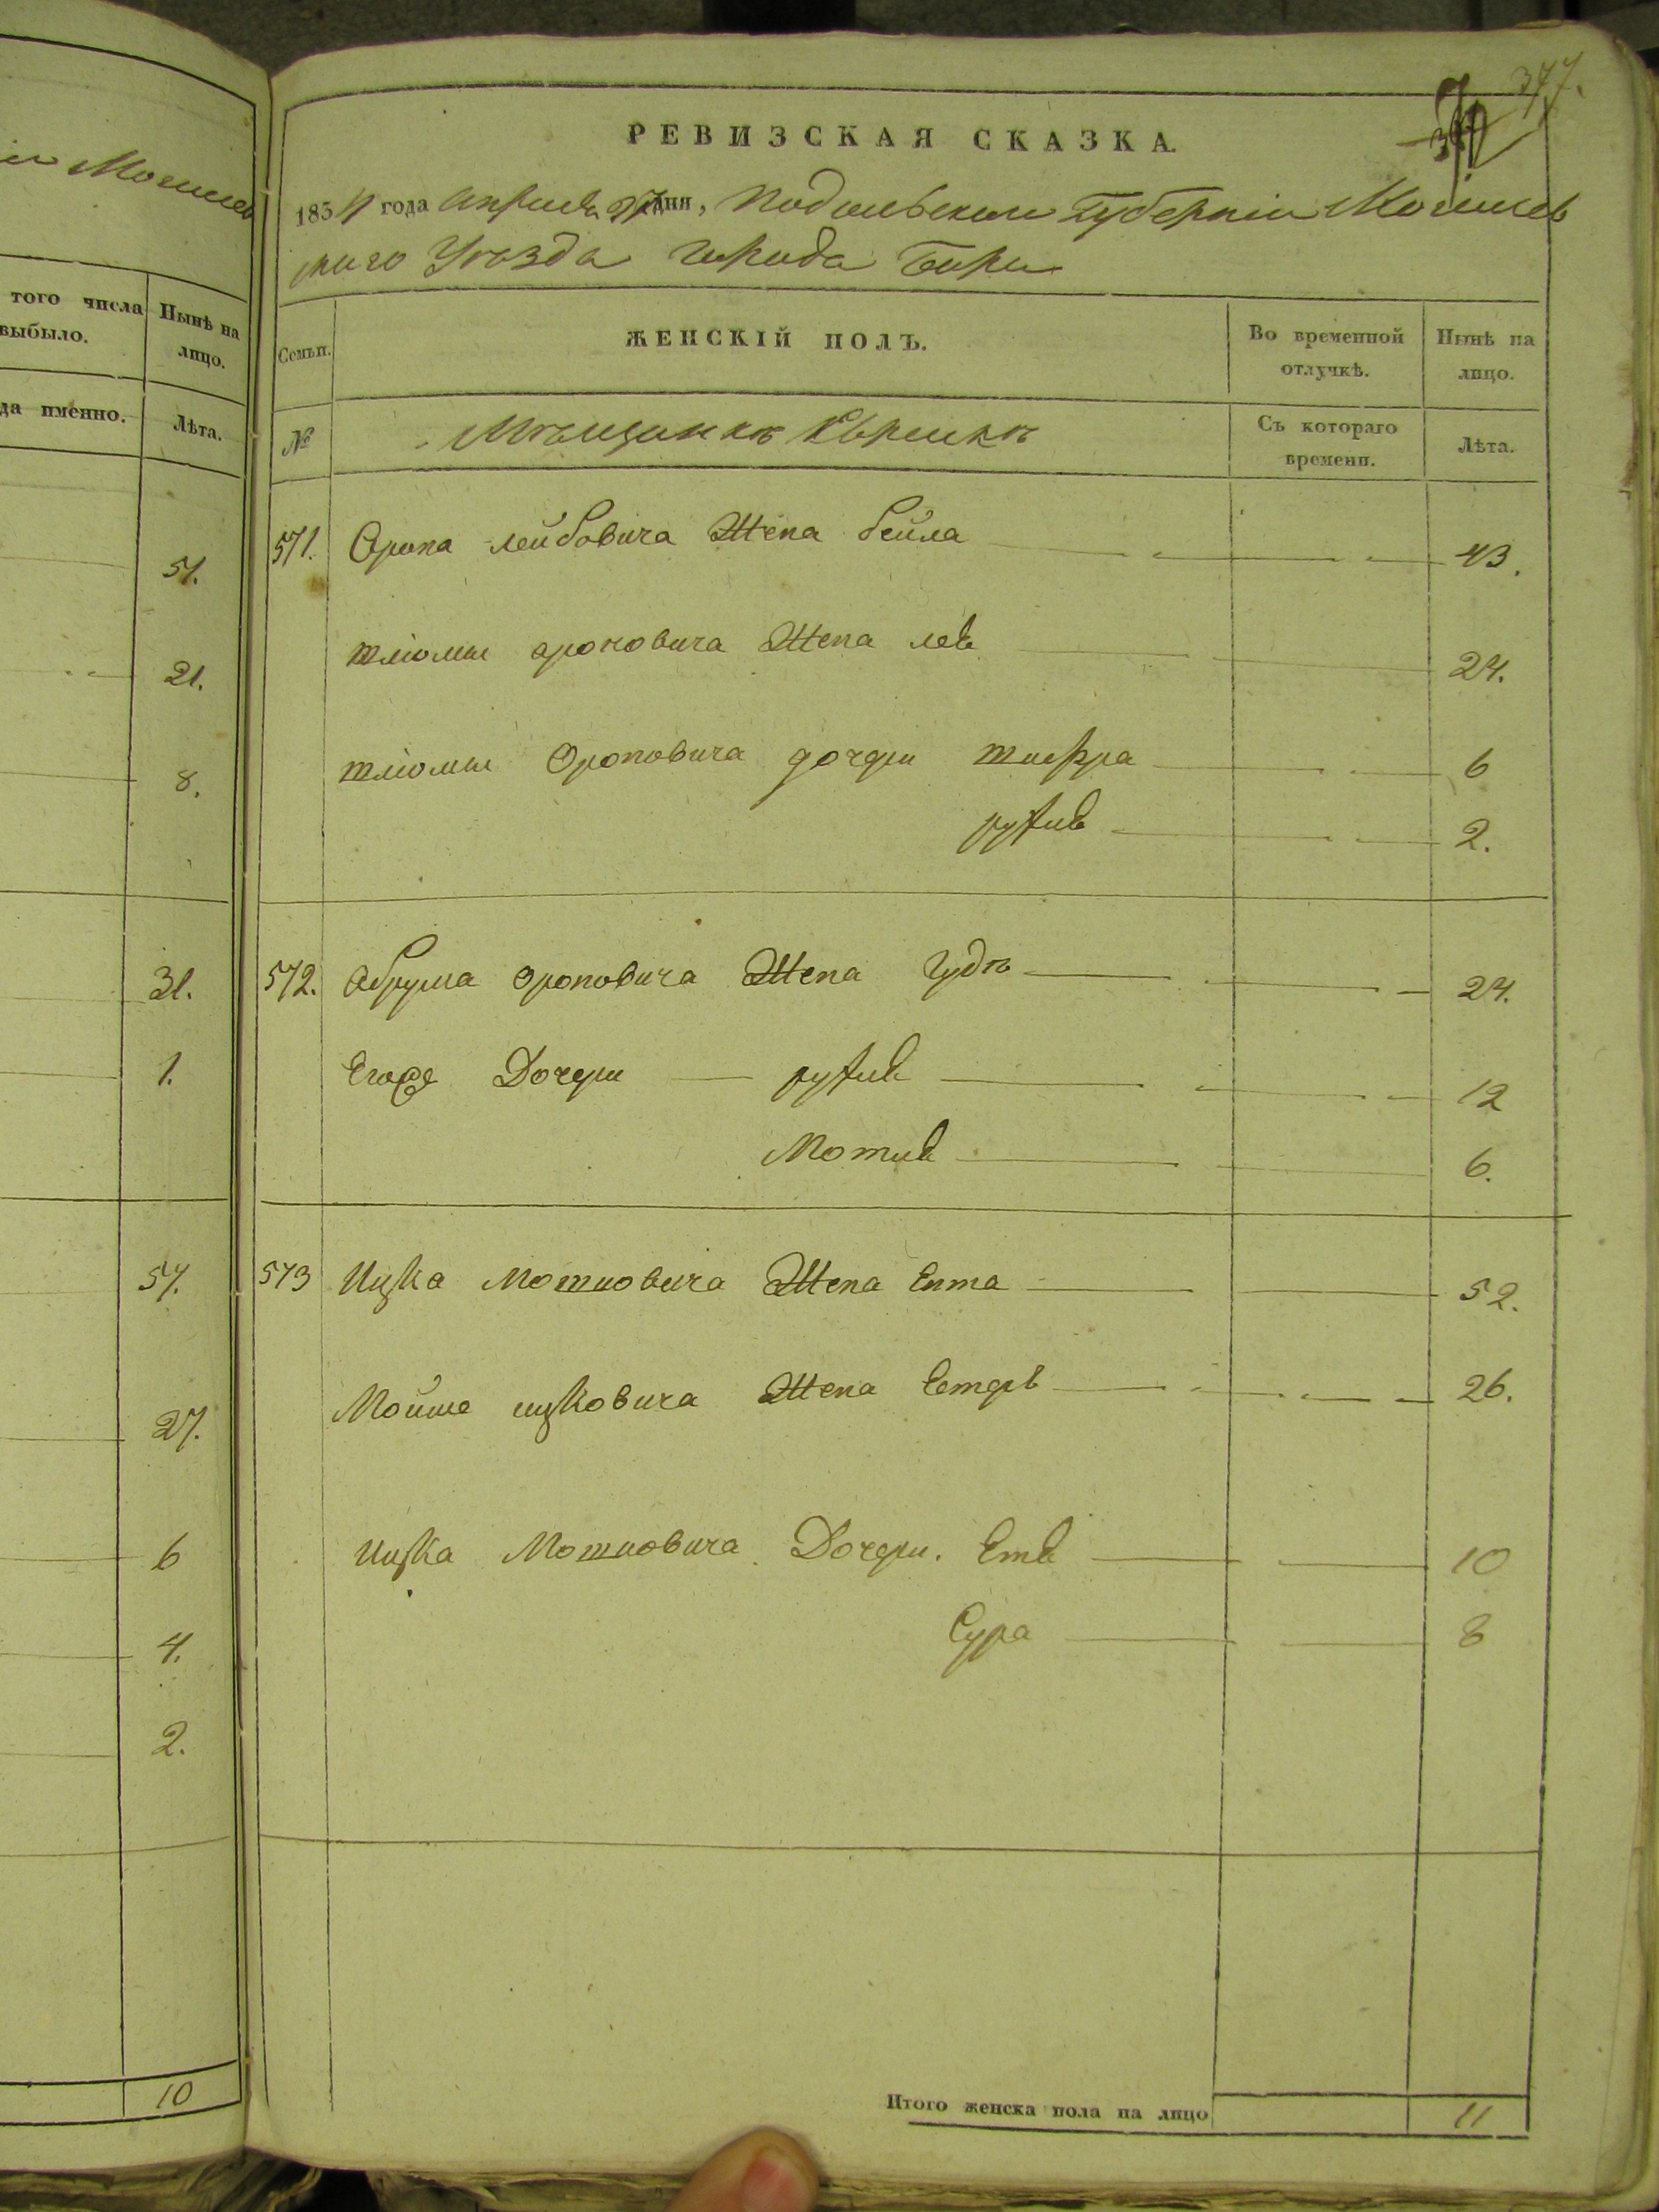 Могилев
того числа
выбыло.
Нынѣ на
лицо.
да именно.
Лѣта.
51.
21.
8.
31.
1.
57.
27.
6
4.
2.
10
377.
РЕВИЗСКАЯ СКАЗКА.
1854 года Апреля дня, Подольской Губерніи Могилев
скаго Уѣзда города Бара
Семьи.
ЖЕНСКІЙ ПОЛЪ.
Во временной
отлучкѣ.
Нынѣ на
лицо.
№
Мѣщанкѣ Евреикѣ
Съ котораго
времени.
Лѣта.
571. Арона Лейбовича Жена бейла 43.
шліомы ароновича Жена лея 24.
шліомы Ароновича дочери шифра 6
рухля 2.
572. Абрума ароновича Жена Гудѣ 24.
Егоже Дочери рухля 12
Мотля 6.
573 Ицка Мотиовича Жена Ента 52.
Мойше ицковича Жена Естеръ 26.
Ицка Мотиовича Дочери. Етя 10
Сура 8
Итого женска пола на лицо 11